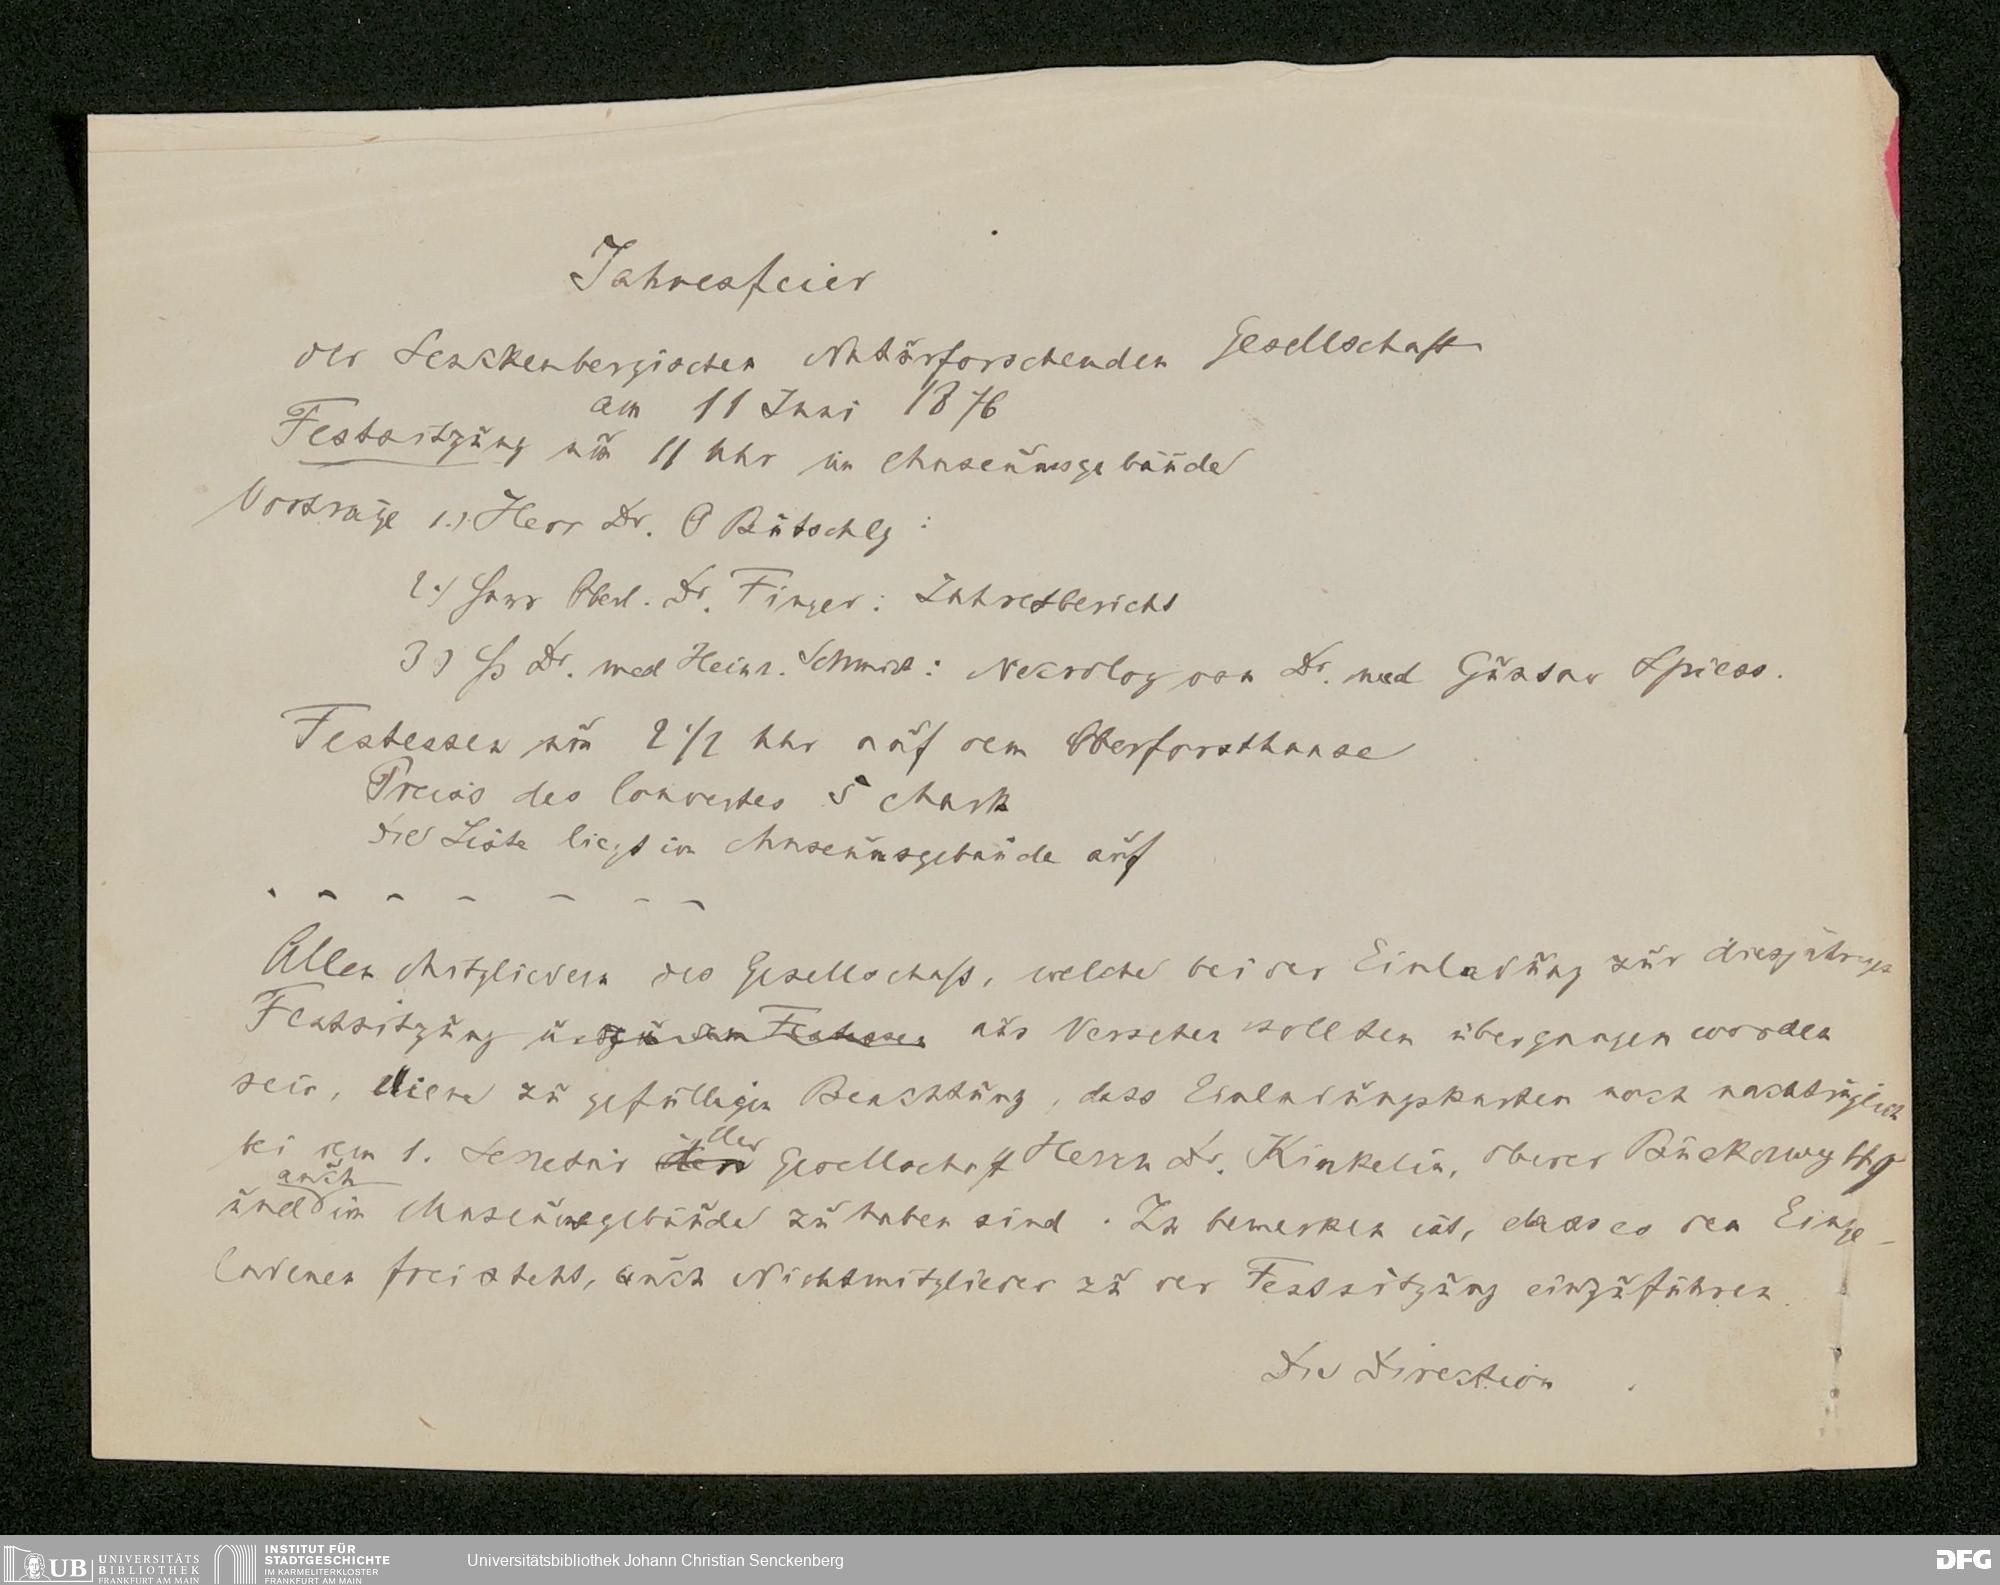 Jahresfeier
der Senckenbergischen Naturforschenden Gesellschaft
am 11 Juni 1876
Festsitzung um 11 Uhr im Museumsgebäude
Vorträge 1.) Herr Dr. O Bütschly :
2.) Herr Oberl. Dr. Finger : Jahresbericht
3) Hr Dr. med Heinr. Schmidt : Nekrolog von Dr. med Gustav Spiess.
Festessen um 2 1/2 Uhr auf dem Oberforsthause
Preis des Couvertes 5 Mark
Die Liste liegt im Museumsgebäude auf
Allen Mitgliedern der Gesellschaft, welche bei der Einladung zur diesjährigen
Festsitzung u. zu dem Festessen aus Versehen sollten übergangen worden
sein, diene zu gefälligen Beachtung, dass Einladungskarten noch nachträglich
bei dem 1. Secretär der Gesellschaft Herrn Dr. Kinkelin, oberer Bäckerweg
auch
und im Museumsgebäude zu haben sind. Zu bemerken ist, dass es den Einge-
ladenen frei steht, auch Nichtmitglieder zu der Festsitzung einzuführen.
Die Direction
UB UNIVERSITÄTS
BIBLIOTHEK
FRANKFURT AM MAIN
INSTITUT FÜR
STADTGESCHICHTE
IM KARMELITERKLOSTER
FRANKFURT AM MAIN
Universitätsbibliothek Johann Christian Senckenberg
DFG